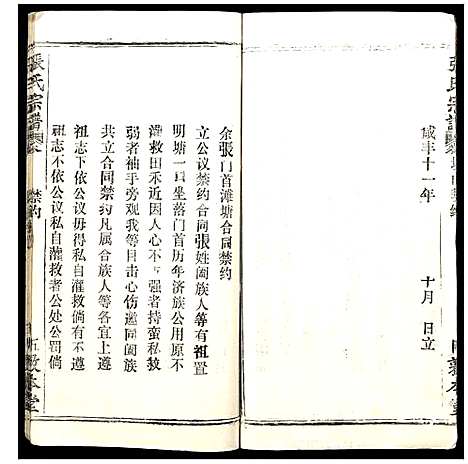 咸丰十一年 十月 日立
余張门首滩塘合同禁约
立公议禁约合同張姓阖族人等有祖置
明塘一口坐落门首历年济族公用原不
灌救田禾近因人心不一强者持蛮私救
弱者袖手旁观我等目击心伤邀同阖族
共立合同禁约凡属合族人等各宜上遵
祖志下依公议毋得私自灌救倘有不遵
祖志不依公议私自灌救者公处公罚倘
張氏宗譜
禁约
敦本堂